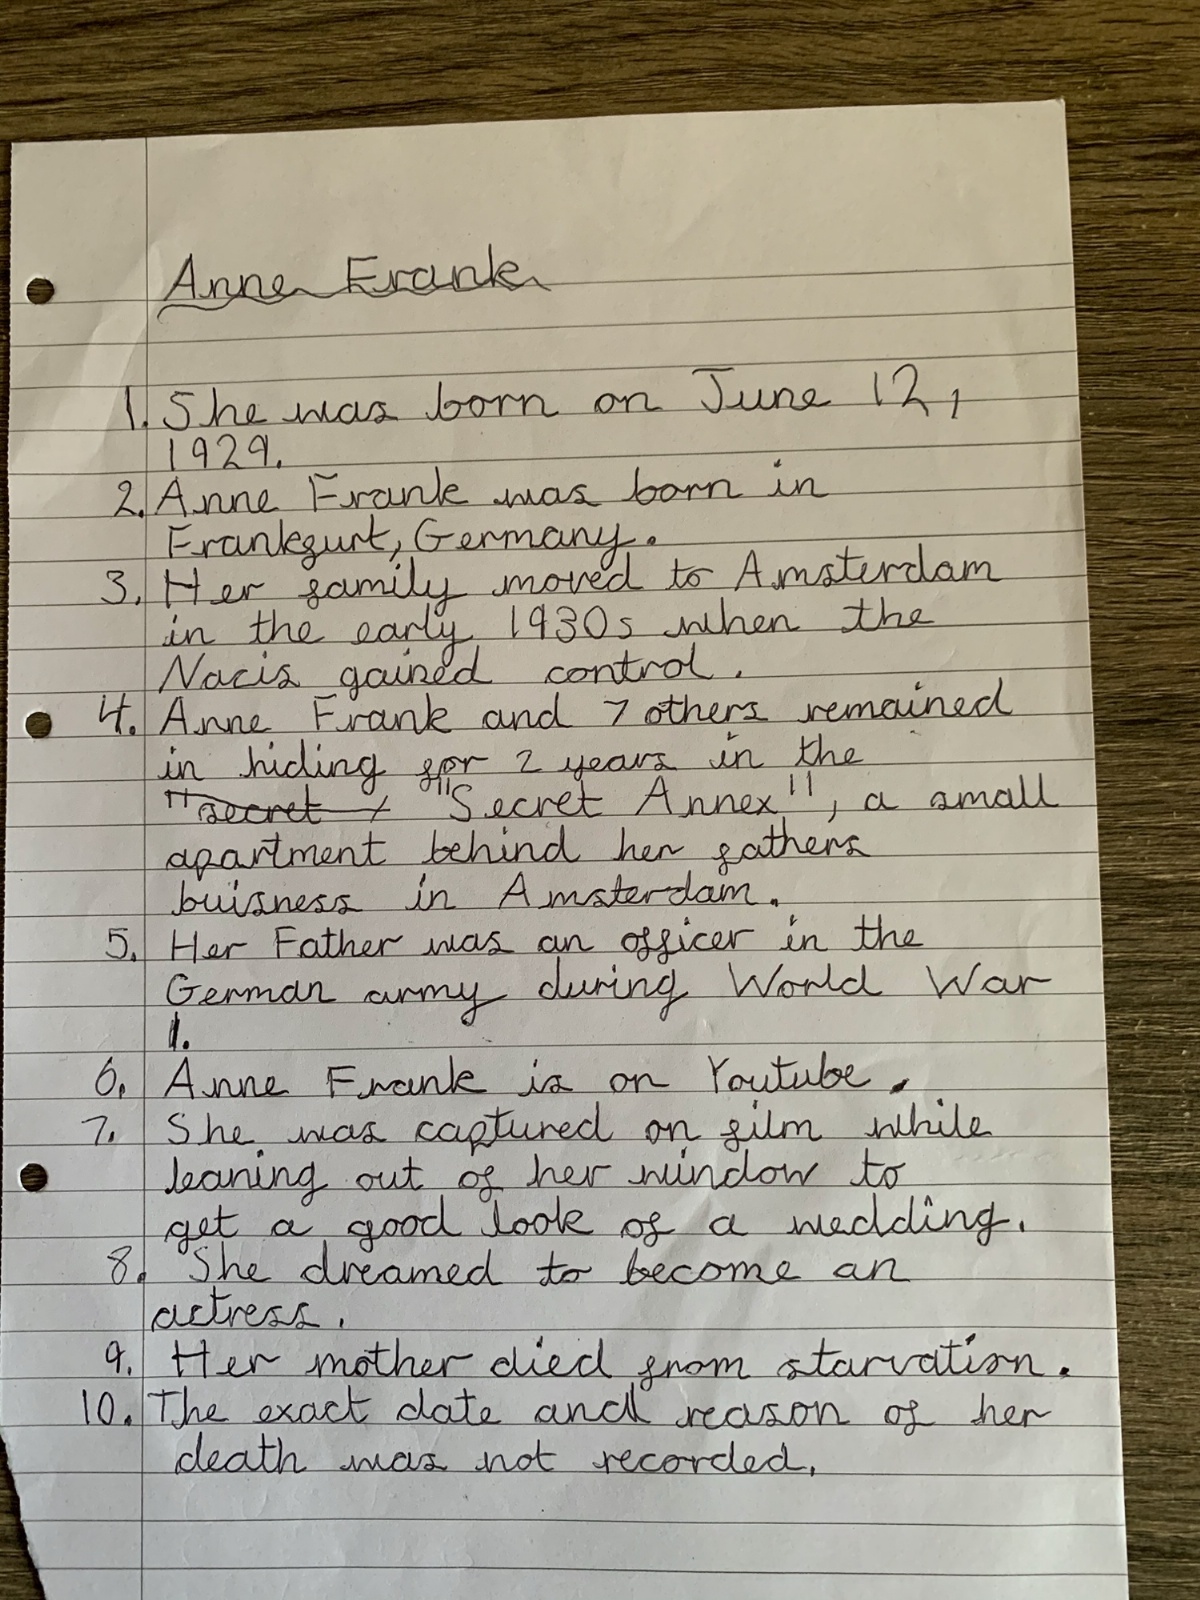 Anne Frank
1. She was born on June 12,
1929.
2. Anne Frank was born in
Frankfurt, Germany.
3. Her family moved to Amsterdam
in the early 1930s when the
Nacis gained control.
4. Anne Frank and 7 others remained
in hiding for 2 years in the
"secret "Secret Annex", a small
apartment behind her fathers
buisness in Amsterdam.
5. Her Father was an officer in the
German army during World War
1.
6. Anne Frank is on Youtube.
7. She was captured on film while
leaning out of her window to
get a good look of a wedding.
8. She dreamed to become an
actress.
9. Her mother died from starvation.
10. The exact date and reason of her
death was not recorded.